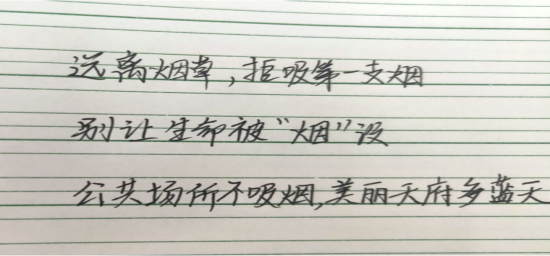 远离烟草，拒吸第一支烟
别让生命被“烟”没
公共场所不吸烟，美丽天府多蓝天